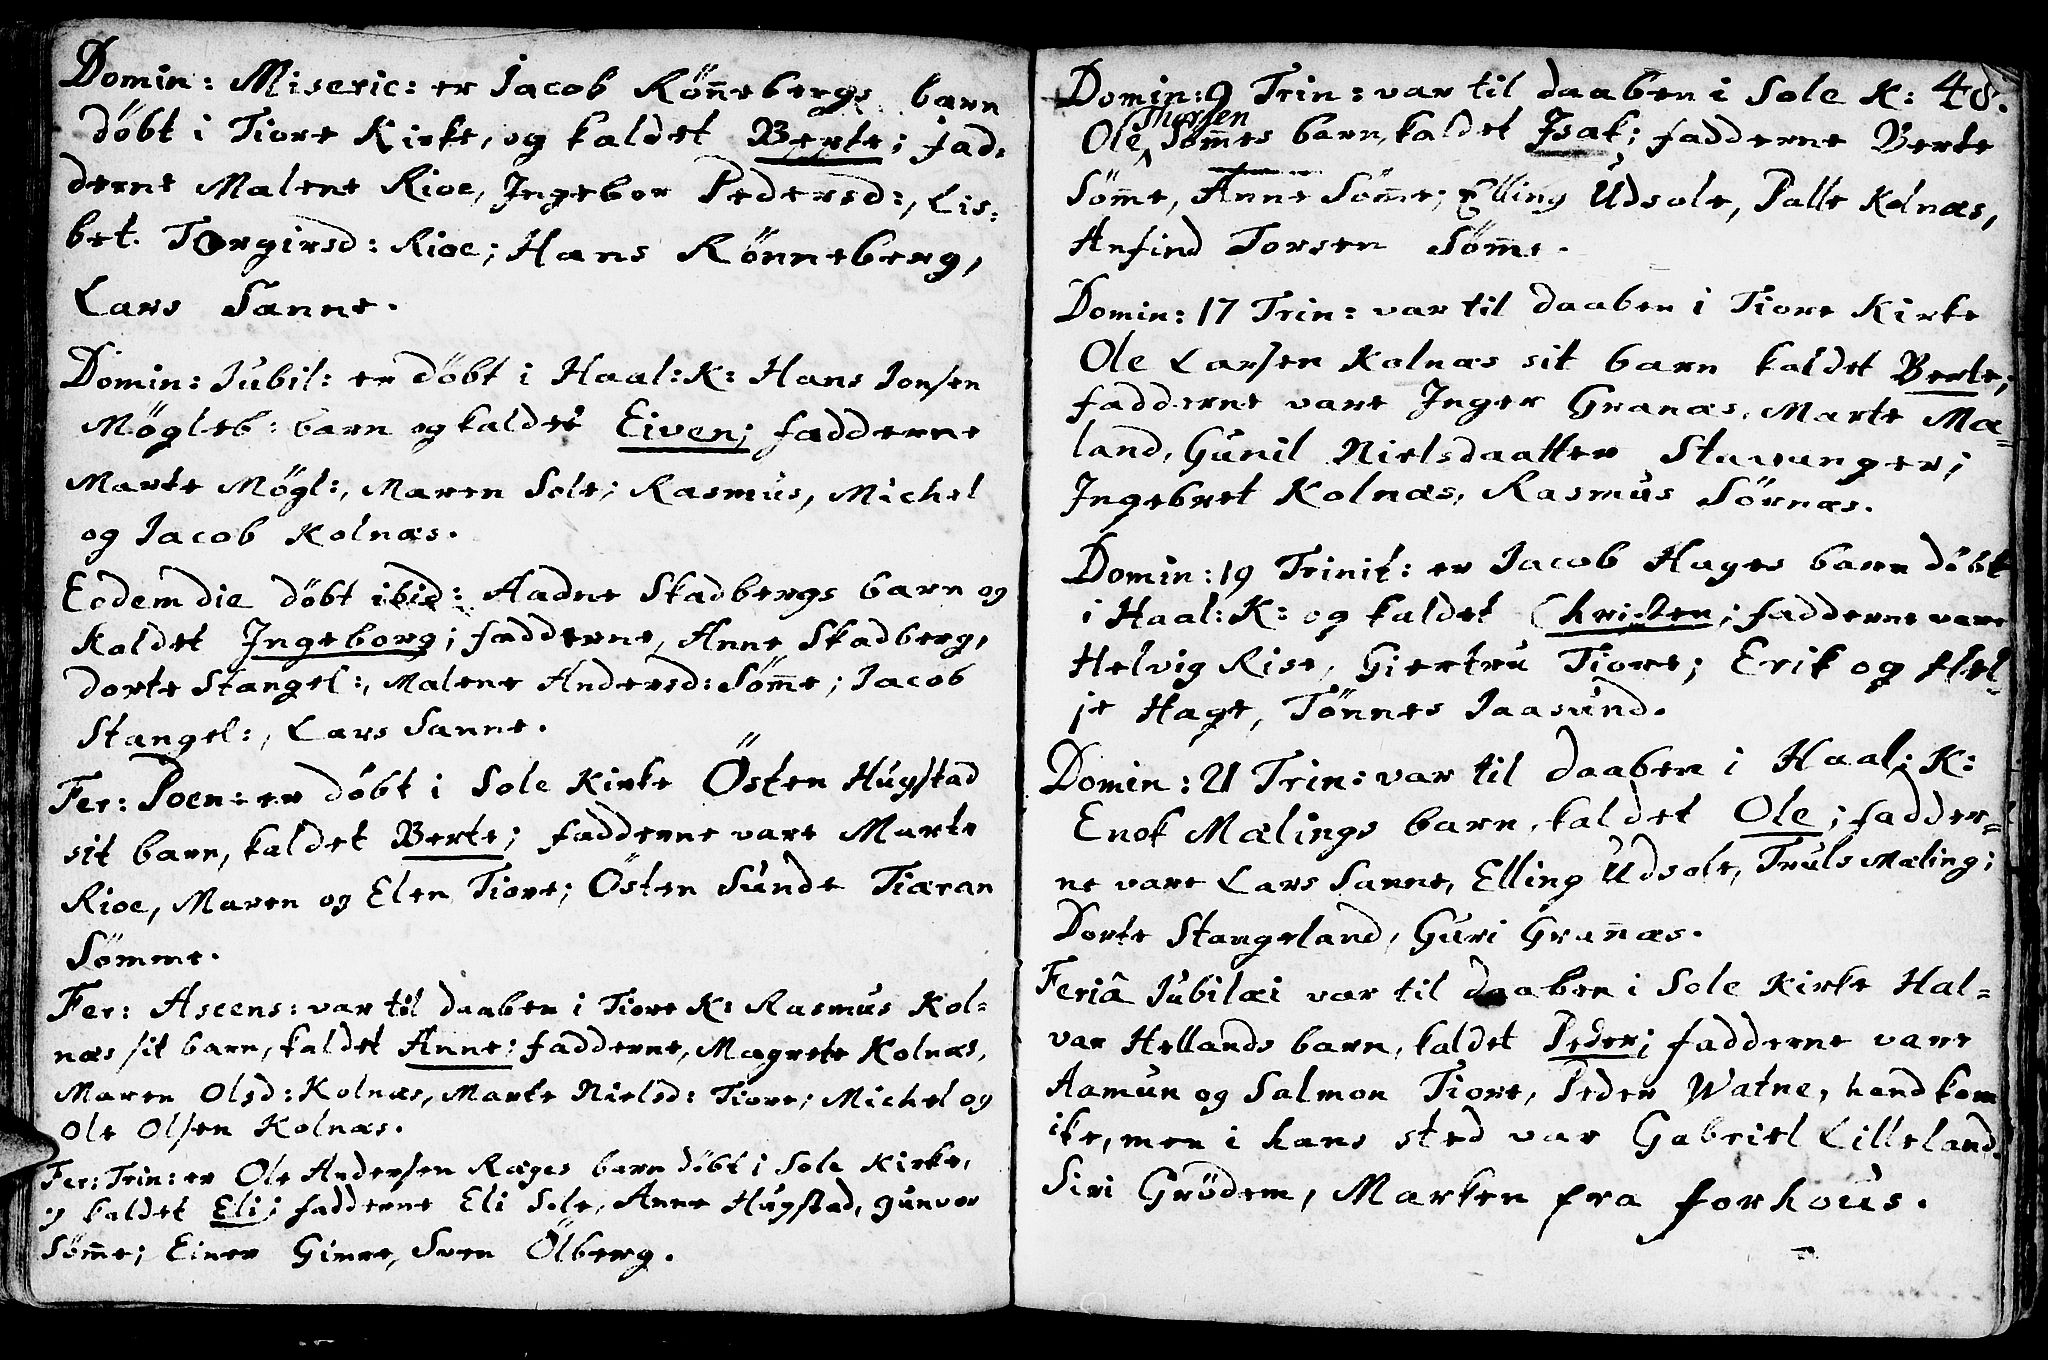 Domin: Miseric: er Jacob Rön̄ebergs barn
döbt i Tiore Kirke, og kaldet Berte; fad-
derne Malene Rioe, Ingebor Pedersd:, Lis-
bet Torgirsd: Rioe; Hans Rönneberg,
Lars Sanne.
Domin: Jubil: er döbt i Haal: K: Hans Jonsen
Mögleb: barn og kaldet Eiven; fadderne
Marte Mögl:, Maren Sole; Rasmus, Michel
og Jacob Kolnæs.
Eodem die döbt ibid: Aadne Skadbergs barn og
kaldet Ingeborg; fadderne, Anne Skadberg,
dorte Stangel:, Malene Andersd: Söm̄e; Jacob
Stangel:, Lars Sanne.
Fer: Poen: er döbt i Sole Kirke Östen Hugstad
sit barn, kaldet Berte; fadderne vare Marte
Rioe, Maren og Elen Tiore; Östen Sunde Tiæran
Sömme.
Fer: Ascens: var til daaben i Tiore K: Rasmus Kol=
næs sit barn, kaldet Anne; fadderne, Magrete Kolnæs,
Maren Olsd: Kolnæs, Marte Nielsd: Tiore; Michel og
Ole Olsen Kolnæs.
Fer: Trin: er Ole Andersen Ræges barn döbt i Sole Kirke,
og kaldet Eli; fadderne Eli Sole, Anne Hugstad, gunvor
Söm̄e; Einer Gimre, Sven Ölberg.
48.
Domin: 9 Trin: var til daaben i Sole K:
Thorsen
Ole Söm̄es barn, kaldet Isak; fadderne Berte
Söm̄e, Anne Söm̄e; Elling Udsole, Palle Kolnæs,
Anfind Torsen Söm̄e.
Domin: 17 Trin: var til daaben i Tiore Kirke
Ole Larsen Kolnæs sit barn kaldet Berte;
fadderne vare Inger Granæs, Marte Ma=
land, Gunil Nielsdaatter Stavanger;
Ingebret Kolnæs, Rasmus Sörnæs.
Domin: 19 Trinit: er Jacob Hages barn döbt
i Haal: K: og kaldet Christen; fadderne vare
Helvig Rise, Giertru Tiore; Erik og Hel=
je Hage, Tönnes Jaasund.
Domin: 21 Trin: var til daaben i Haal: K:
Enok Mælings barn, kaldet Ole; fadder=
ne vare Lars Sanne, Elling Udsole, Truls Mæling;
Dorte Stangeland, Guri Gran̄æs.
Feriâ Jubilæi var til daaben i Sole Kirke Hal=
var Hellands barn, kaldet Peder; fadderne vare
Aamun og Salmon Tiore, Peder Watne, hand kom
ike, men i hans sted var Gabriel Lilleland.
Siri Grödem, Marken fra forhous.